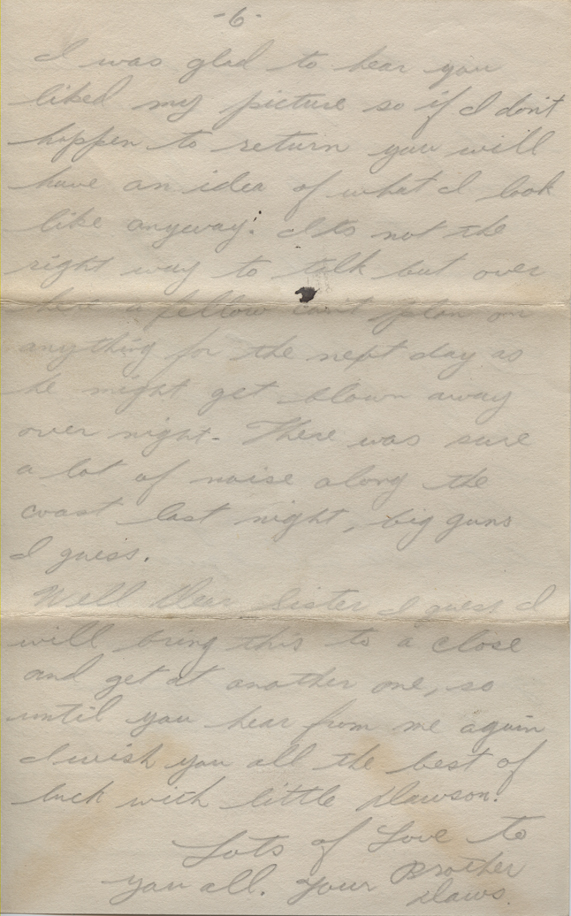 -6-
I was glad to hear you
liked my picture so if I don't
happen to return you will
have an idea of what I look
like anyway. Its not the
right way to talk but over
here a fellow can't plan on
anything for the next day as
he might get blown away
over night. There was sure
a lot of noise along the
coast last night, big guns
I guess.
Well Dear Sister I guess I
will bring this to a close
and get at another one, so
until you hear from me again
I wish you all the best of
luck with little Dawson.
Lots of Love to
you all. Your Brother
Daws.